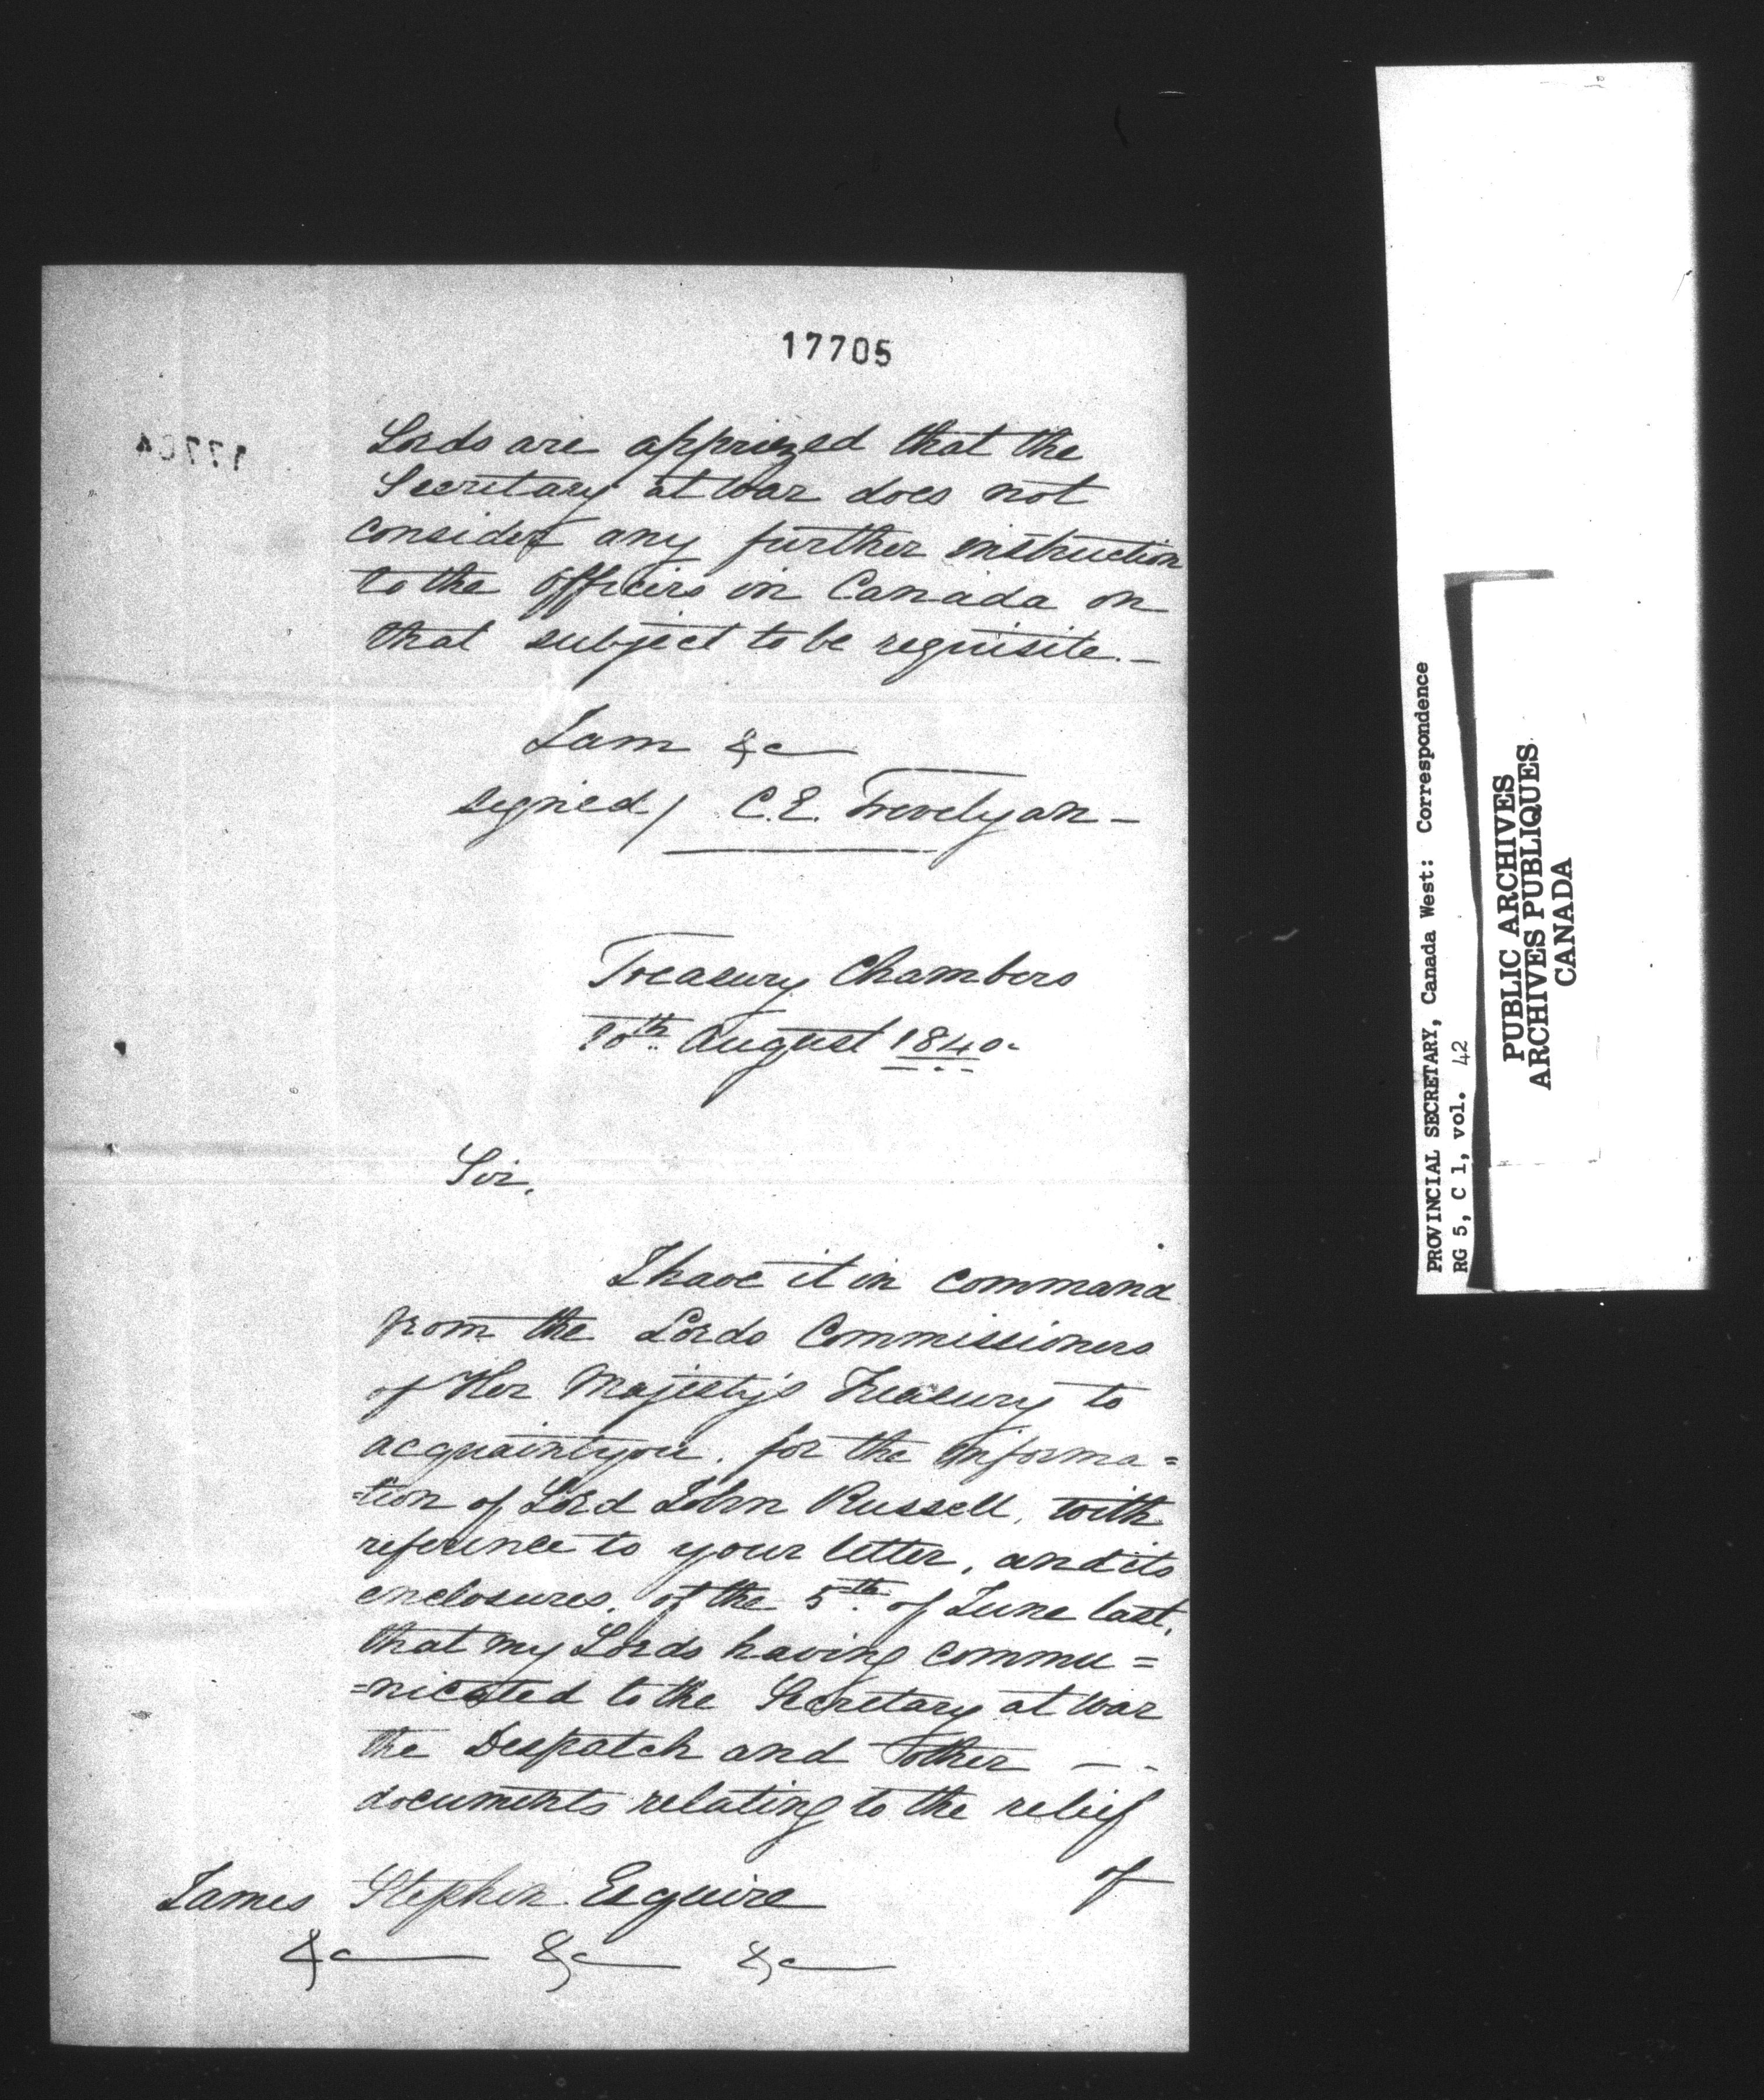 17705
Lords are apprized that the
Secretary at War does not
consider any further instruction
to the Officers in Canada on
that subject to be requisite.—
I am &c
signed / C.E. Trevelyan —
Treasury Chambers
10th August 1840.
Sir,
I have it in command
from the Lords Commissioners
of Her Majesty's Treasury to
acquaint you, for the informa=
=tion of Lord John Russell, with
reference to your letter, and its
enclosures, of the 5th of June last,
that my Lords having commu=
=nicated to the Secretary at War
the Despatch and other — -
documents relating to the relief
of
James Stephen Esquire
&c &c &c
PROVINCIAL SECRETARY, Canada West: Correspondence
RG 5, C 1, vol. 42
PUBLIC ARCHIVES
ARCHIVES PUBLIQUES
CANADA